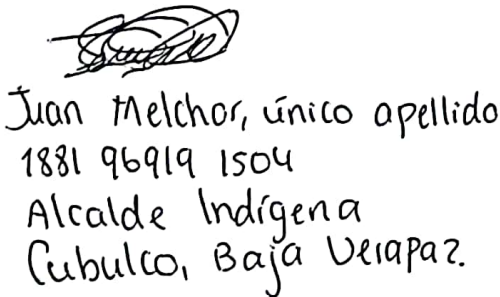 Juan Melchor, único apellido
1881 96919 1504
Alcalde Indígena
Cubulco, Baja Verapaz.